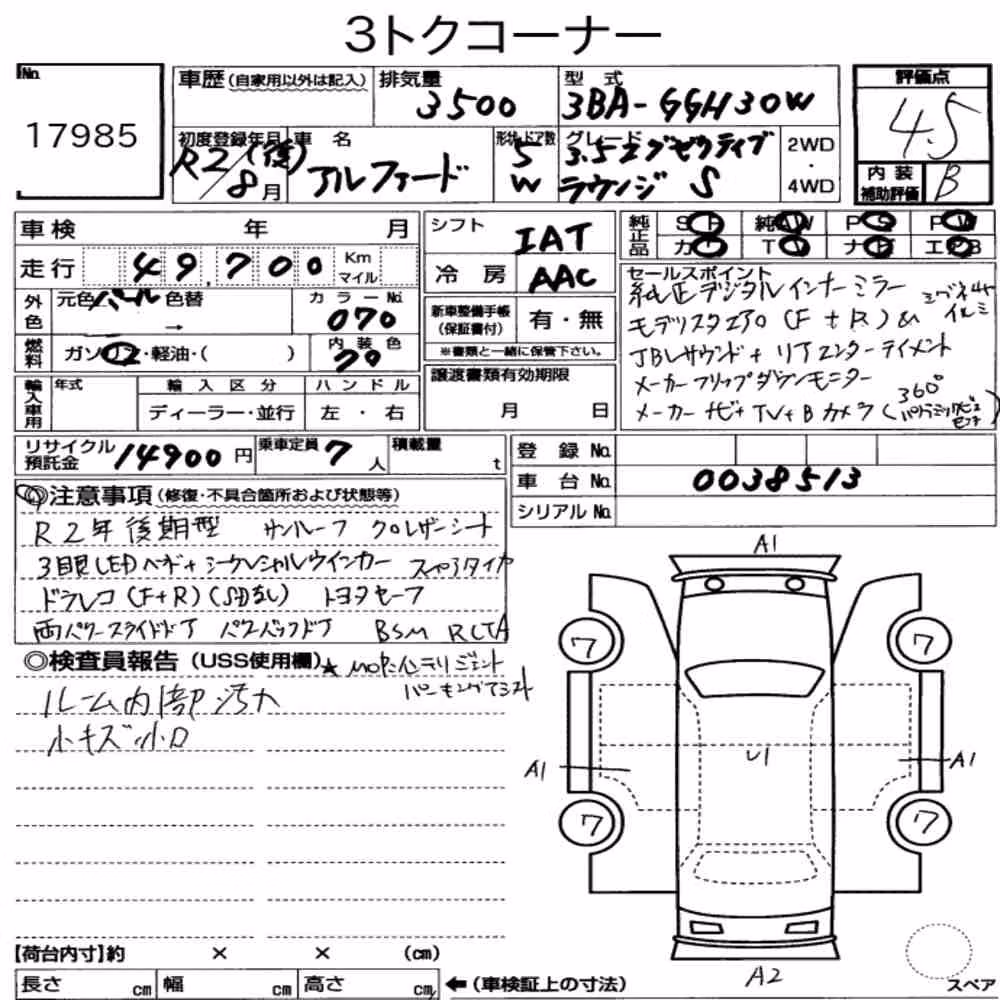 3トクコーナー
No. 17985
車歴 (自家用以外は記入) 排気量 3500 型式 3BA-GGH30W
評価点 4.5
内装補助評価 B
初度登録年月 R2/8月 (後) 車名 アルファード 形状 ドア数 5 W グレード 3.5エグゼクティブ ラウンジ S 2WD・4WD
車検 年 月
走行 49,700 Km マイル
外色 元色 パール 色替 → カラーNo. 070
燃料 ガソリン・軽油・( ) 内装色 70
輸入車用 年式 輸入区分 ディーラー・並行 ハンドル 左・右
シフト IAT
冷房 AAC
新車整備手帳 (保証書付) 有・無
※書類と一緒に保管下さい。
譲渡書類有効期限
月 日
純正品 SR 純AW PS PW
カワ TV ナビ エアB
セールスポイント
純正デジタルインナーミラー
モデリスタエアロ (F+R) &
JBLサウンド+リアエンターテイメント
メーカーフリップダウンモニター
メーカーナビ+TV+Bカメラ (360°
リサイクル預託金 14900円 乗車定員 7人 積載量 t
登録No.
車台No. 0038513
シリアルNo.
◎注意事項 (修復・不具合箇所および状態等)
R2年後期型 サンルーフ クロレザーシート
3眼LEDヘッド+シーケンシャルウインカー スペアタイヤ
ドラレコ (F+R) (SDなし) トヨタセーフ
両パワースライドドア パワーバックドア BSM RCTA
◎検査員報告 (USS使用欄) ★MOPインテリジェント
パーキングアシスト
ルーム内部汚れ
小キズ小凹
A1
7 7
A1 U1 A1
7 7
A2
スペア
【荷台内寸】約 × × (cm)
長さ cm 幅 cm 高さ cm ←(車検証上の寸法)